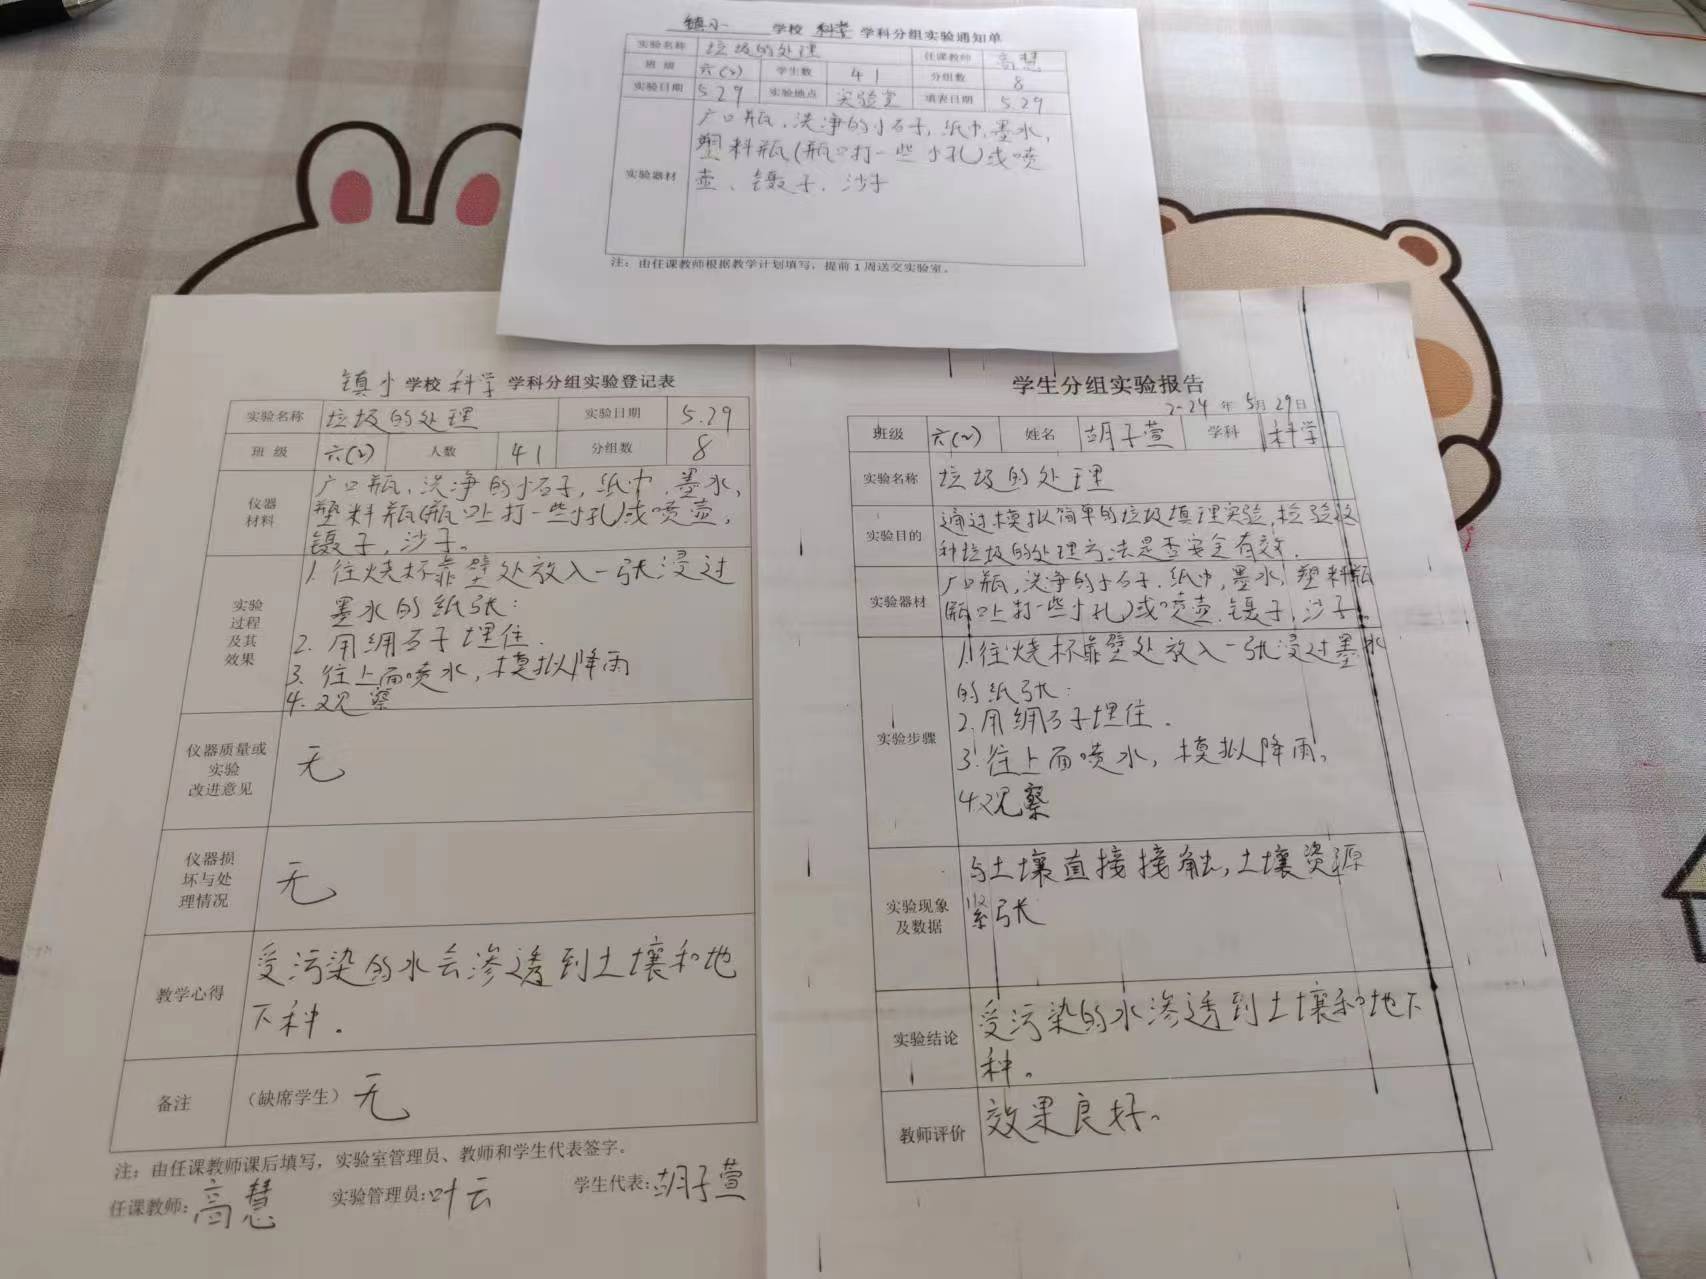 镇小 学校 科学 学科分组实验通知单
实验名称 垃圾的处理 任课教师 高慧
班 级 六(2) 学生数 41 分组数 8
实验日期 5.29 实验地点 实验室 填表日期 5.29
实验器材
广口瓶、洗净的小石子,纸巾,墨水,
塑料瓶(瓶口打一些小孔)或喷
壶、镊子、沙子
注：由任课教师根据教学计划填写，提前1周送交实验室。
镇小 学校 科学 学科分组实验登记表
实验名称 垃圾的处理 实验日期 5.29
班 级 六(2) 人数 41 分组数 8
仪器
材料
广口瓶,洗净的小石子,纸巾,墨水,
塑料瓶(瓶口上打一些小孔)或喷壶,
镊子,沙子。
实验
过程
及其
效果
1.往烧杯靠壁处放入一张浸过
墨水的纸张:
2.用绸石子埋住.
3.往上面喷水,模拟降雨
4.观察
仪器质量或
实验
改进意见
无
仪器损
坏与处
理情况
无
教学心得
受污染的水会渗透到土壤和地
下种。
备注 （缺席学生）无
注：由任课教师课后填写，实验室管理员、教师和学生代表签字。
任课教师:高慧 实验管理员:叶云 学生代表:胡子萱
学生分组实验报告
2-24 年 5月 29日
班级 六(2) 姓名 胡子萱 学科 科学
实验名称 垃圾的处理
实验目的
通过模拟简单的垃圾填理实验,检验这
种垃圾的处理方法是否安全有效.
实验器材
广口瓶,洗净的小石子.纸巾,墨水,塑料瓶
瓶口上打一些小孔)或喷壶.镊子,沙子。
实验步骤
1.往烧杯靠壁处放入一张浸过墨水
的纸张:
2.用绸石子埋住.
3.往上面喷水,模拟降雨。
4.观察
实验现象
及数据
与土壤直接接触,土壤资源
紧张
实验结论
受污染的水渗透到土壤和地下
种。
教师评价 效果良好。